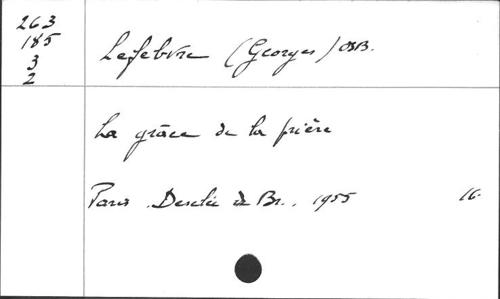 263
185
3
2
Lefebvre (Georges) OSB.
La grâce de la prière
Paris. Desclée de Br., 1955 16.